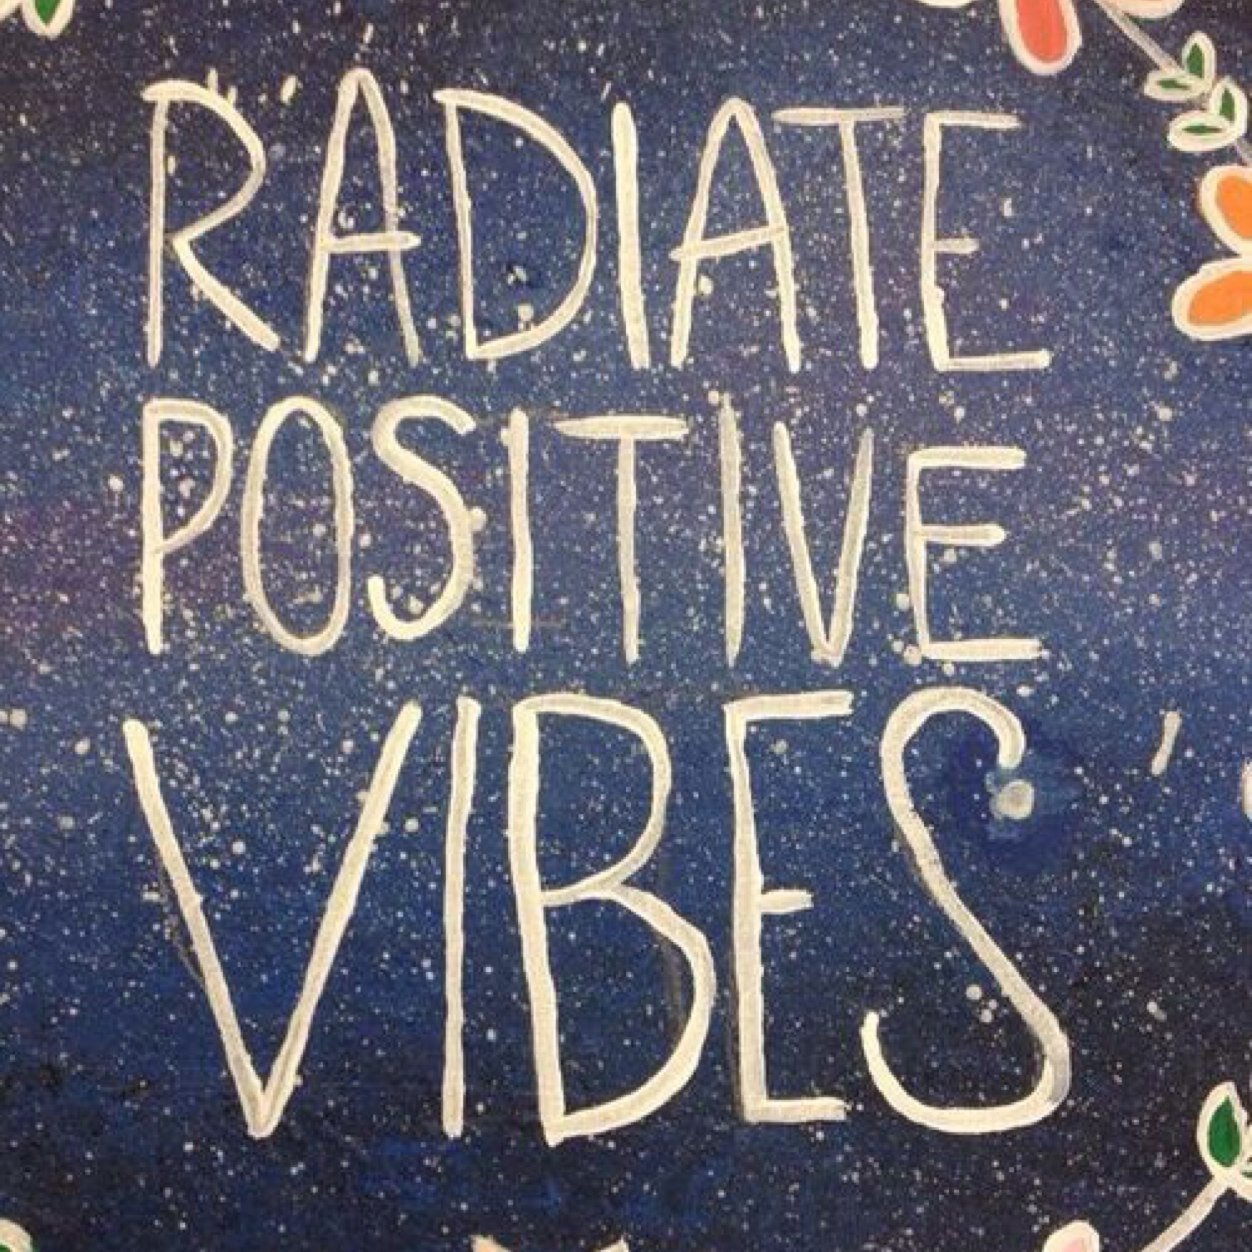 RADIATE
POSITIVE
VIBES